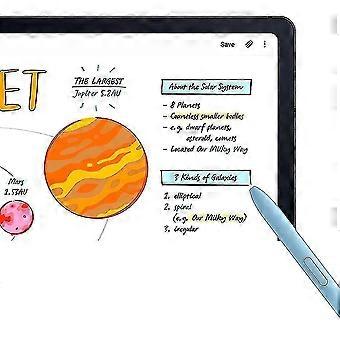 Save
ET
THE LARGEST
Jupiter 5.2AU
Mars
1.53AU
About the Solar System
- 8 Planets
- Countless smaller bodies
- e.g. dwarf planets,
asteroid, comets
- Located Our Milky Way
3 Kinds of Galaxies
1. elliptical
2. spiral
(e.g. Our Milky Way)
3. irregular